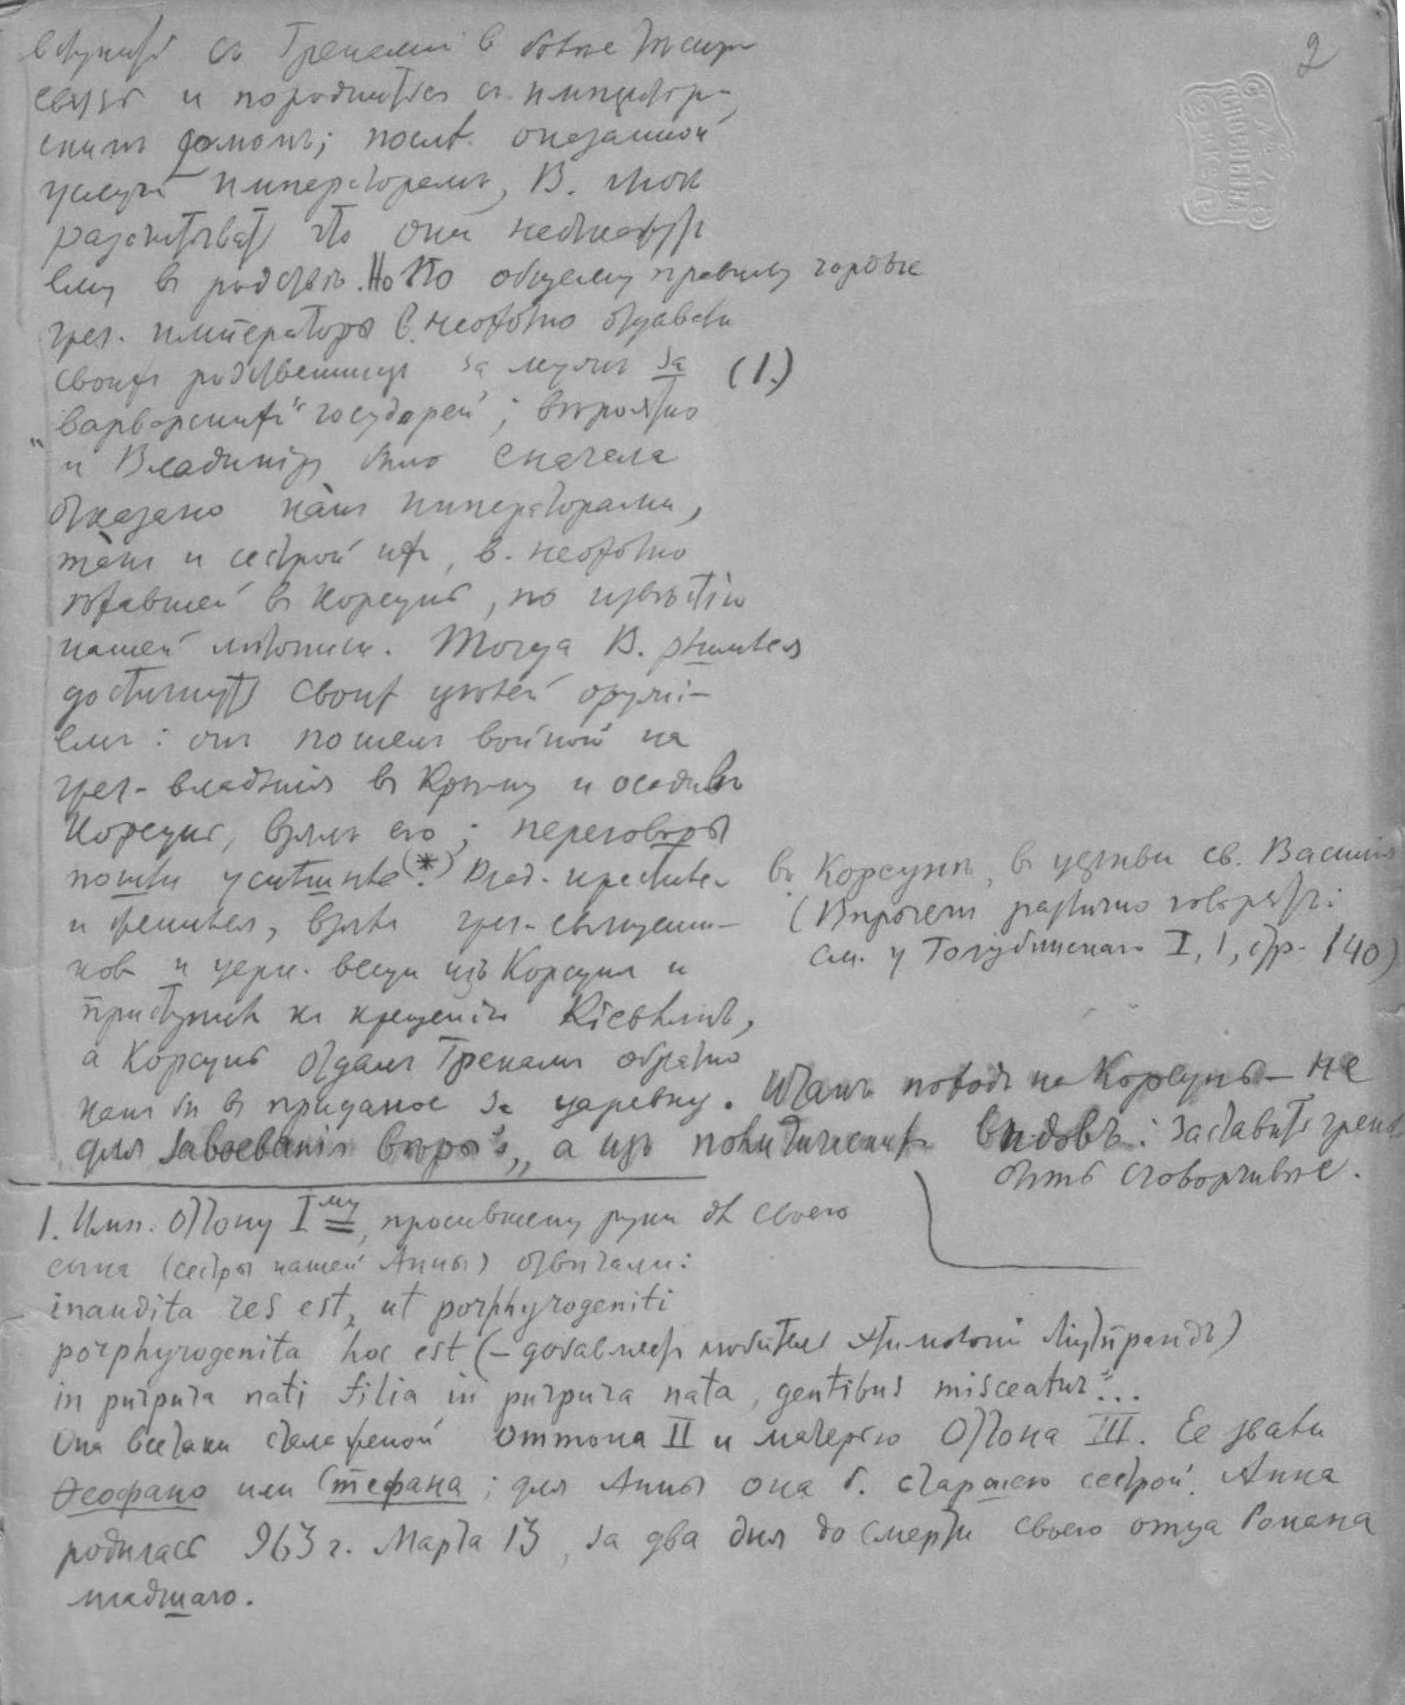 2
вступить съ Греками в более тесную
связь и породниться съ императорс-
ким домомъ; после оказанной
услуги императорамъ, В. мог
разсчитывать что они не откажутъ
ему въ родстве. Но по общему правилу гордые
греч. императоры б. неохотно отдавали
своихъ родственницъ за мужъ за (1.)
"варварскихъ" государей; вероятно
и Владимиру было сначала
отказано какъ императорами,
такъ и сестрой ихъ, б. неохотно
поехавшей въ Корсунь, по известію
нашей летописи. Тогда В. решился
достигнуть своих целей оружі-
емъ: онъ пошелъ войной на
греч. владенія въ Крыму и осадивъ
Корсунь, взялъ его; переговоры
пошли успешнее (*). Влад. крестился
и женился, взялъ греч. священни-
ков и церк. вещи изъ Корсуня и
приступилъ къ крещенію Кіевлянъ,
а Корсунь отдалъ Грекамъ обратно
какъ бы в приданое за царевну. Итакъ походъ на Корсунь – не
для завоеванія веры, а изъ политическихъ видовъ: заставить грековъ
быть сговорчивее.
въ Корсуне, въ церкви св. Василія
(Впрочемъ различно говорятъ:
см. у Голубинскаго I, 1, стр. 140)
1. Имп. Оттону I му, просившему руки дл своего
сына (сестры нашей Анны) отвечали:
inaudita res est, ut porphyrogeniti
porphyrogenita hoc est (– добавляетъ любитель этимологіи Ліутпрандъ)
in purpura nati filia in purpura nata, gentibus misceatur"...
Она всетаки стала женой Оттона II и матерью Оттона III. Ее звали
Феофано или Стефана; для Анны она б. старшею сестрой. Анна
родилась 963 г. Марта 13, за два дня до смерти своего отца Романа
младшаго.